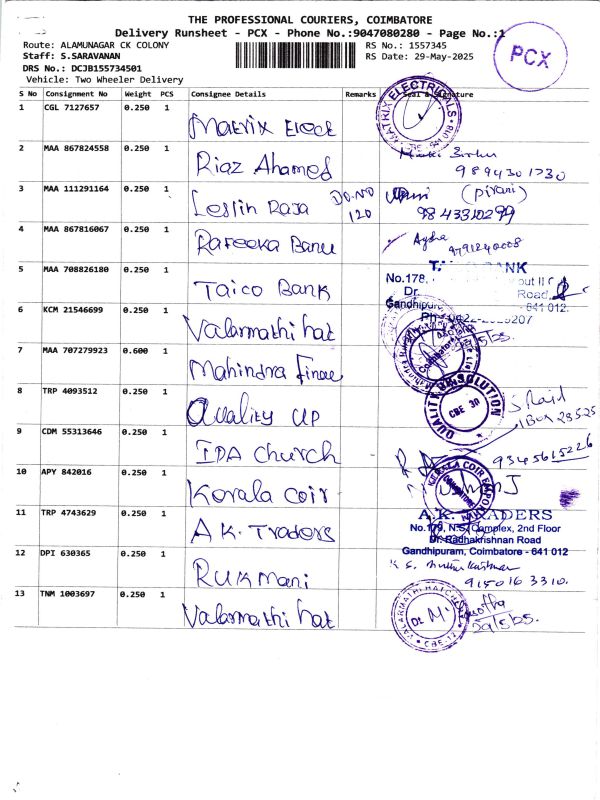 THE PROFESSIONAL COURIERS, COIMBATORE
Delivery Runsheet - PCX - Phone No.:9047080280 - Page No.:1
Route: ALAMUNAGAR CK COLONY RS No.: 1557345
Staff: S.SARAVANAN RS Date: 29-May-2025
DRS No.: DCJB155734501
Vehicle: Two Wheeler Delivery
PCX
S No Consignment No Weight PCS Consignee Details Remarks Seal & Signature
1 CGL 7127657 0.250 1 Matrix Elect
MATRIX ELECTRICALS
2 MAA 867824558 0.250 1 Riaz Ahamed
9894301730
3 MAA 111291164 0.250 1 Leslin Raja DO.NO 120 (Pirani)
9843310299
4 MAA 867816067 0.250 1 Rafeeka Banu Aysha
9791240008
5 MAA 708826180 0.250 1 Taico Bank
BANK
No.178,
Dr. Road,
Gandhipuram, 641 012.
6 KCM 21546699 0.250 1 Valarmathi hat
7 MAA 707279923 0.600 1 Mahindra Finan
8 TRP 4093512 0.250 1 Quality UP
QUALITY UP SOLUTION
CBE 30
9 CDM 55313646 0.250 1 IPA Church
9345615226
10 APY 842016 0.250 1 Kerala Coir
KERALA COIR EMPORIUM
11 TRP 4743629 0.250 1 A.K. Traders
A.K. TRADERS
No.179, N.S. Complex, 2nd Floor
Dr. Radhakrishnan Road
Gandhipuram, Coimbatore - 641 012
12 DPI 630365 0.250 1 Rukmani
9150163310.
13 TNM 1003697 0.250 1 Valarmathi hat
VALARMATHI HATCHERIES
CBE-12
29/5/25.